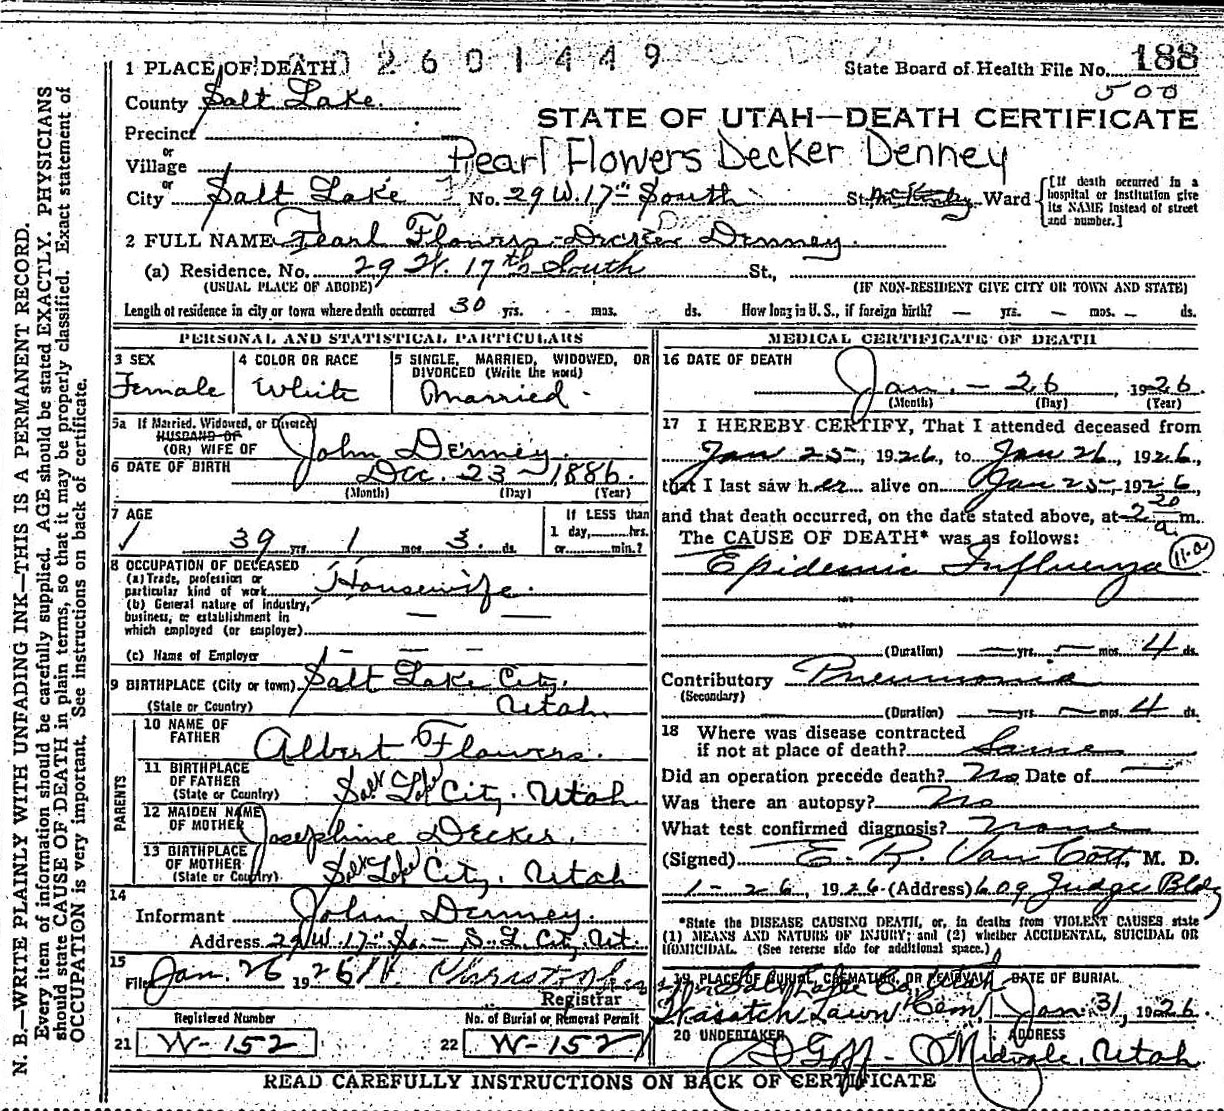 2601449
State Board of Health File No. 188
500
1 PLACE OF DEATH
County Salt Lake
STATE OF UTAH—DEATH CERTIFICATE
Precinct
or
Village
Pearl Flowers Decker Denney
or
City Salt Lake No. 29 W. 17th South St. Ward
[If death occurred in a hospital or institution give its NAME instead of street and number.]
2 FULL NAME Pearl Flowers Decker Denney
(a) Residence, No. 29 W. 17th South St.,
(USUAL PLACE OF ABODE) (IF NON-RESIDENT GIVE CITY OR TOWN AND STATE)
Length of residence in city or town where death occurred 30 yrs. — mos. — ds. How long in U. S., if foreign birth? — yrs. — mos. — ds.
PERSONAL AND STATISTICAL PARTICULARS
3 SEX
Female
4 COLOR OR RACE
White
5 SINGLE, MARRIED, WIDOWED, OR DIVORCED (Write the word)
Married
5a If Married, Widowed, or Divorced
HUSBAND OF
(OR) WIFE OF John Denney
6 DATE OF BIRTH Dec. 23 - 1886
(Month) (Day) (Year)
7 AGE
39 yrs. 1 mos. 3 ds.
If LESS than
1 day, hrs.
or min.?
8 OCCUPATION OF DECEASED
(a) Trade, profession or
particular kind of work Housewife
(b) General nature of industry,
business, or establishment in
which employed (or employer)
(c) Name of Employer
9 BIRTHPLACE (City or town) Salt Lake City.
(State or Country) Utah.
PARENTS
10 NAME OF
FATHER Albert Flowers.
11 BIRTHPLACE
OF FATHER
(State or Country) Salt Lake City. Utah
12 MAIDEN NAME
OF MOTHER Josephine Decker.
13 BIRTHPLACE
OF MOTHER
(State or Country) Salt Lake City. Utah
14
Informant John Denney.
Address 29 W. 17th So. — S. L. City, Ut.
15
Filed Jan. 26 1926
Registrar
Registered Number No. of Burial or Removal Permit
21 W-152 22 W-152
MEDICAL CERTIFICATE OF DEATH
16 DATE OF DEATH
Jan. - 26 1926
(Month) (Day) (Year)
17 I HEREBY CERTIFY, That I attended deceased from
Jan 25, 1926, to Jan 26, 1926,
that I last saw her alive on Jan 25, 1926,
and that death occurred, on the date stated above, at 2 20 a. m.
The CAUSE OF DEATH* was as follows:
Epidemic Influenza 11-a
(Duration) — yrs. — mos. 4 ds.
Contributory Pneumonia
(Secondary)
(Duration) — yrs. — mos. 4 ds.
18 Where was disease contracted
if not at place of death? Same
Did an operation precede death? No Date of —
Was there an autopsy? No
What test confirmed diagnosis? None
(Signed) E. R. Van Cott, M. D.
1-26, 1926 (Address) 609 Judge Bldg
*State the DISEASE CAUSING DEATH, or, in deaths from VIOLENT CAUSES state
(1) MEANS AND NATURE OF INJURY; and (2) whether ACCIDENTAL, SUICIDAL OR
HOMICIDAL. (See reverse side for additional space.)
19 PLACE OF BURIAL, CREMATION, OR REMOVAL DATE OF BURIAL
Salt Lake Co, Utah
Wasatch Lawn Cem Jan 31, 1926
20 UNDERTAKER ADDRESS
Goff - Midvale, Utah
READ CAREFULLY INSTRUCTIONS ON BACK OF CERTIFICATE
N. B.—WRITE PLAINLY WITH UNFADING INK—THIS IS A PERMANENT RECORD.
Every item of information should be carefully supplied. AGE should be stated EXACTLY. PHYSICIANS
should state CAUSE OF DEATH in plain terms, so that it may be properly classified. Exact statement of
OCCUPATION is very important. See instructions on back of certificate.